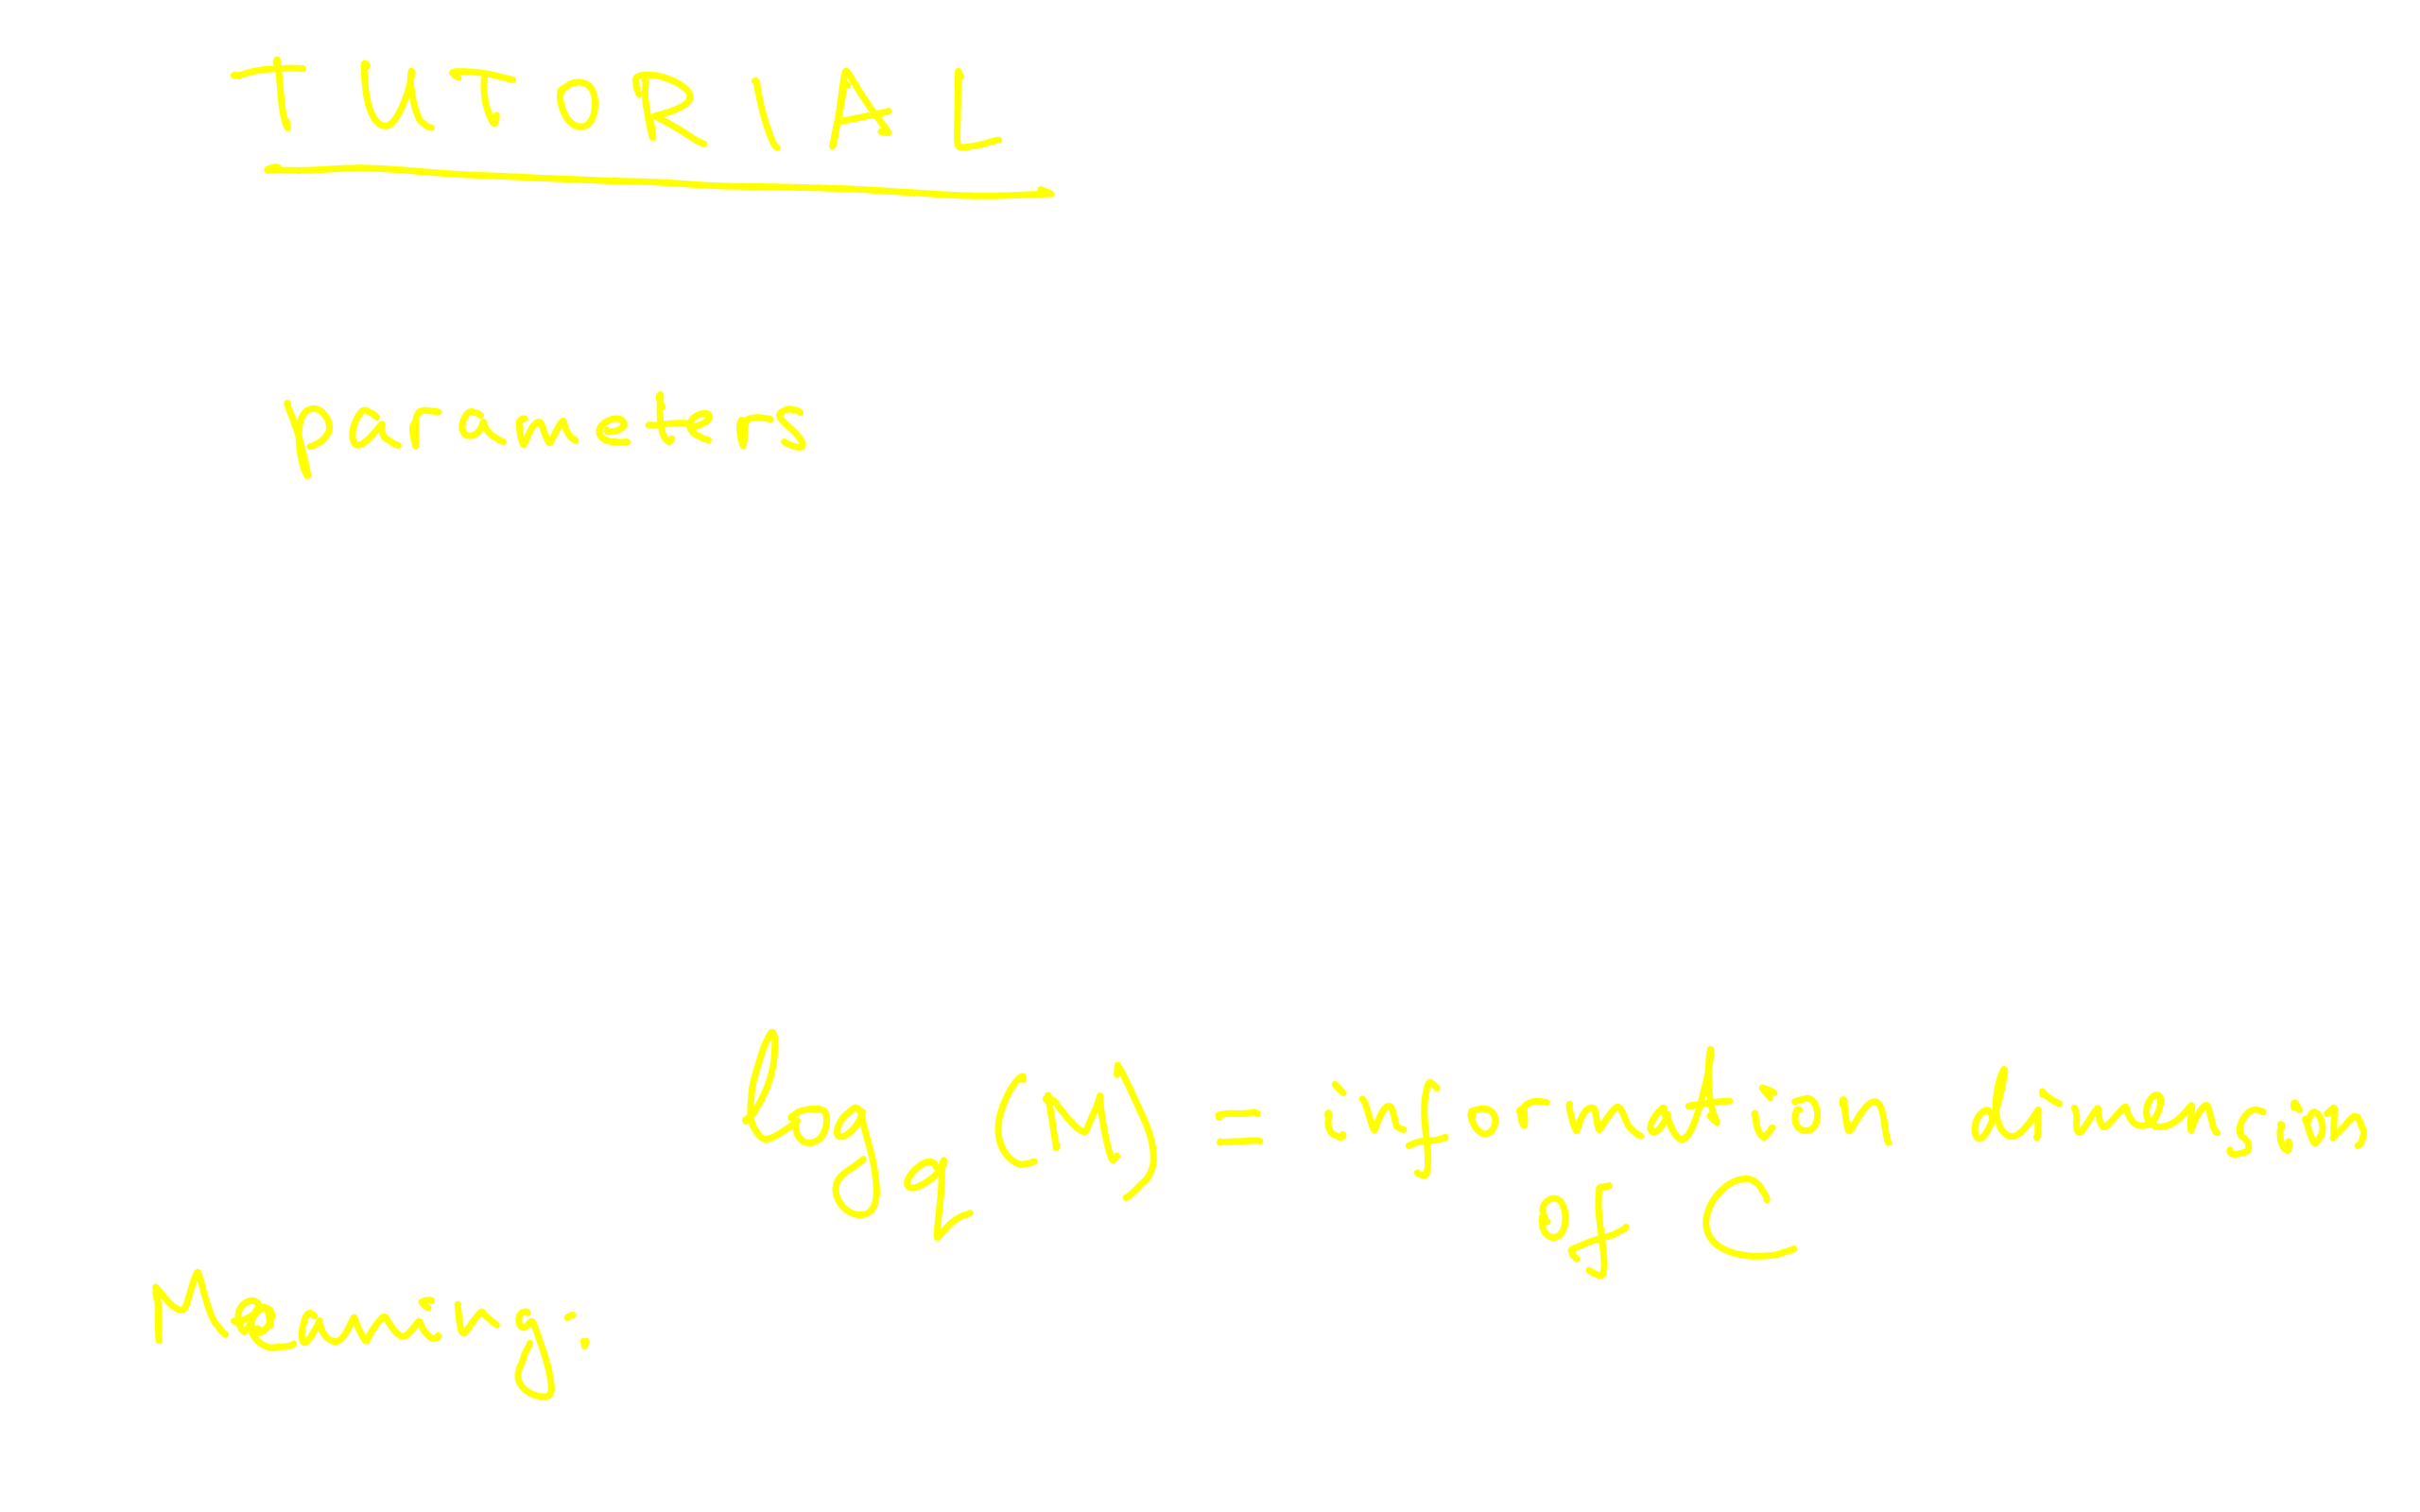 TUTORIAL
parameters
log_q (M) = information dimension
of C
Meaning: